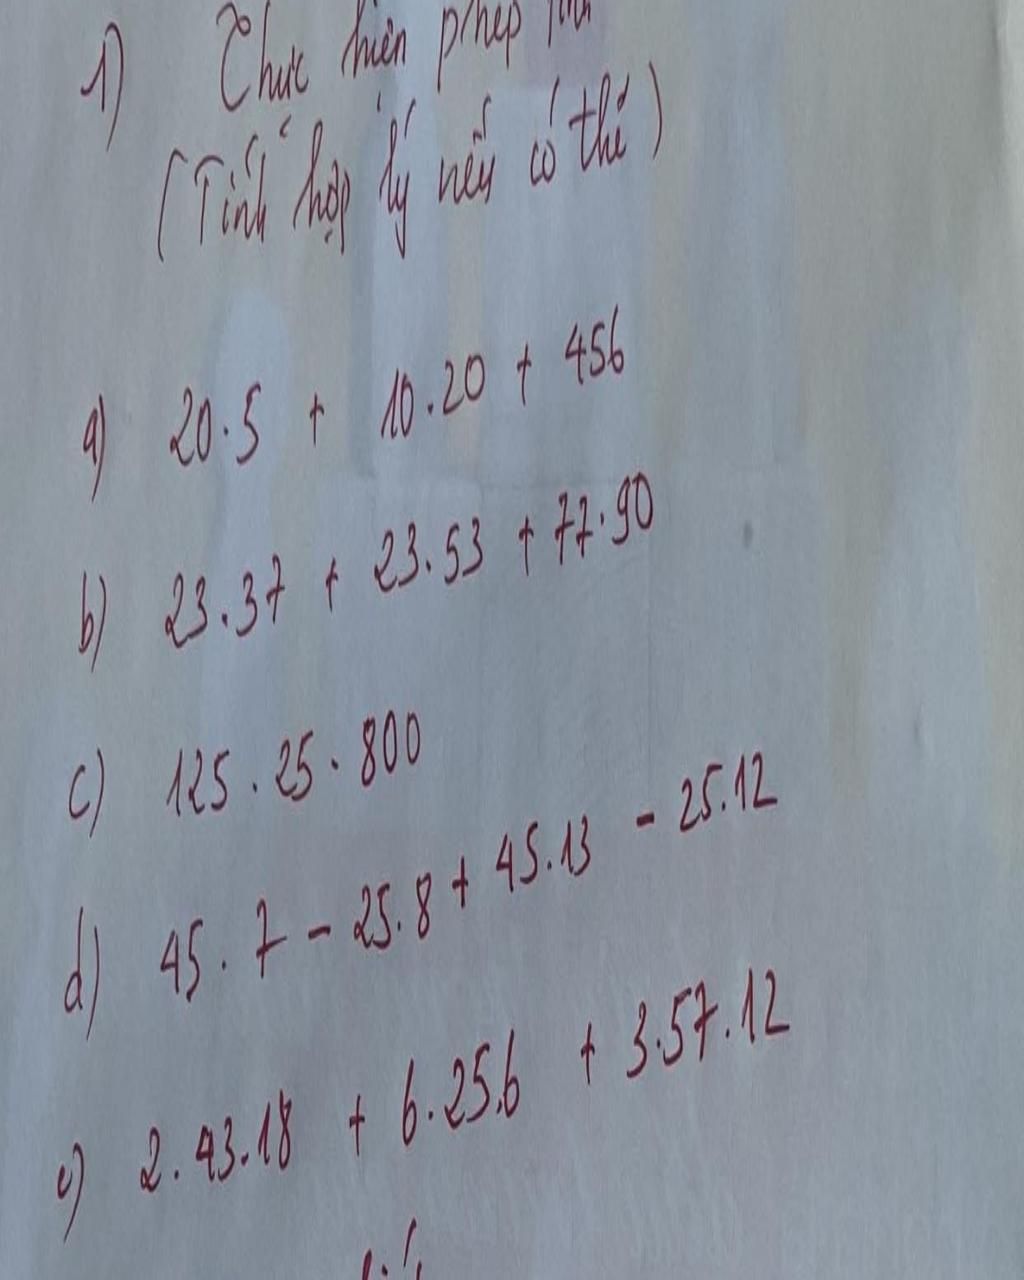 1) Thực hiện phép tính
(Tính hợp lý nếu có thể)
a) 20.5 + 10.20 + 456
b) 23.37 + 23.53 + 77.90
c) 125.25.800
d) 45.7 - 25.8 + 45.13 - 25.12
e) 2.43.18 + 6.25.6 + 3.57.12